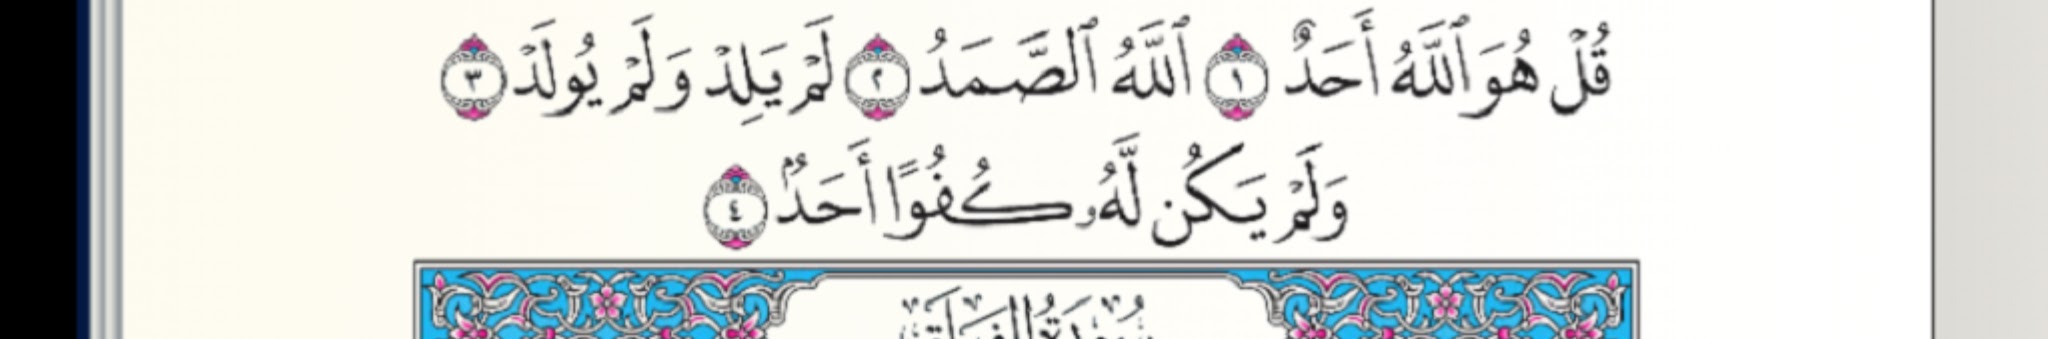 قُلْ هُوَ ٱللَّهُ أَحَدٌ ١ ٱللَّهُ ٱلصَّمَدُ ٢ لَمْ يَلِدْ وَلَمْ يُولَدْ ٣
وَلَمْ يَكُن لَّهُۥ كُفُوًا أَحَدٌۢ ٤
سُورَةُ الفَلَقِ